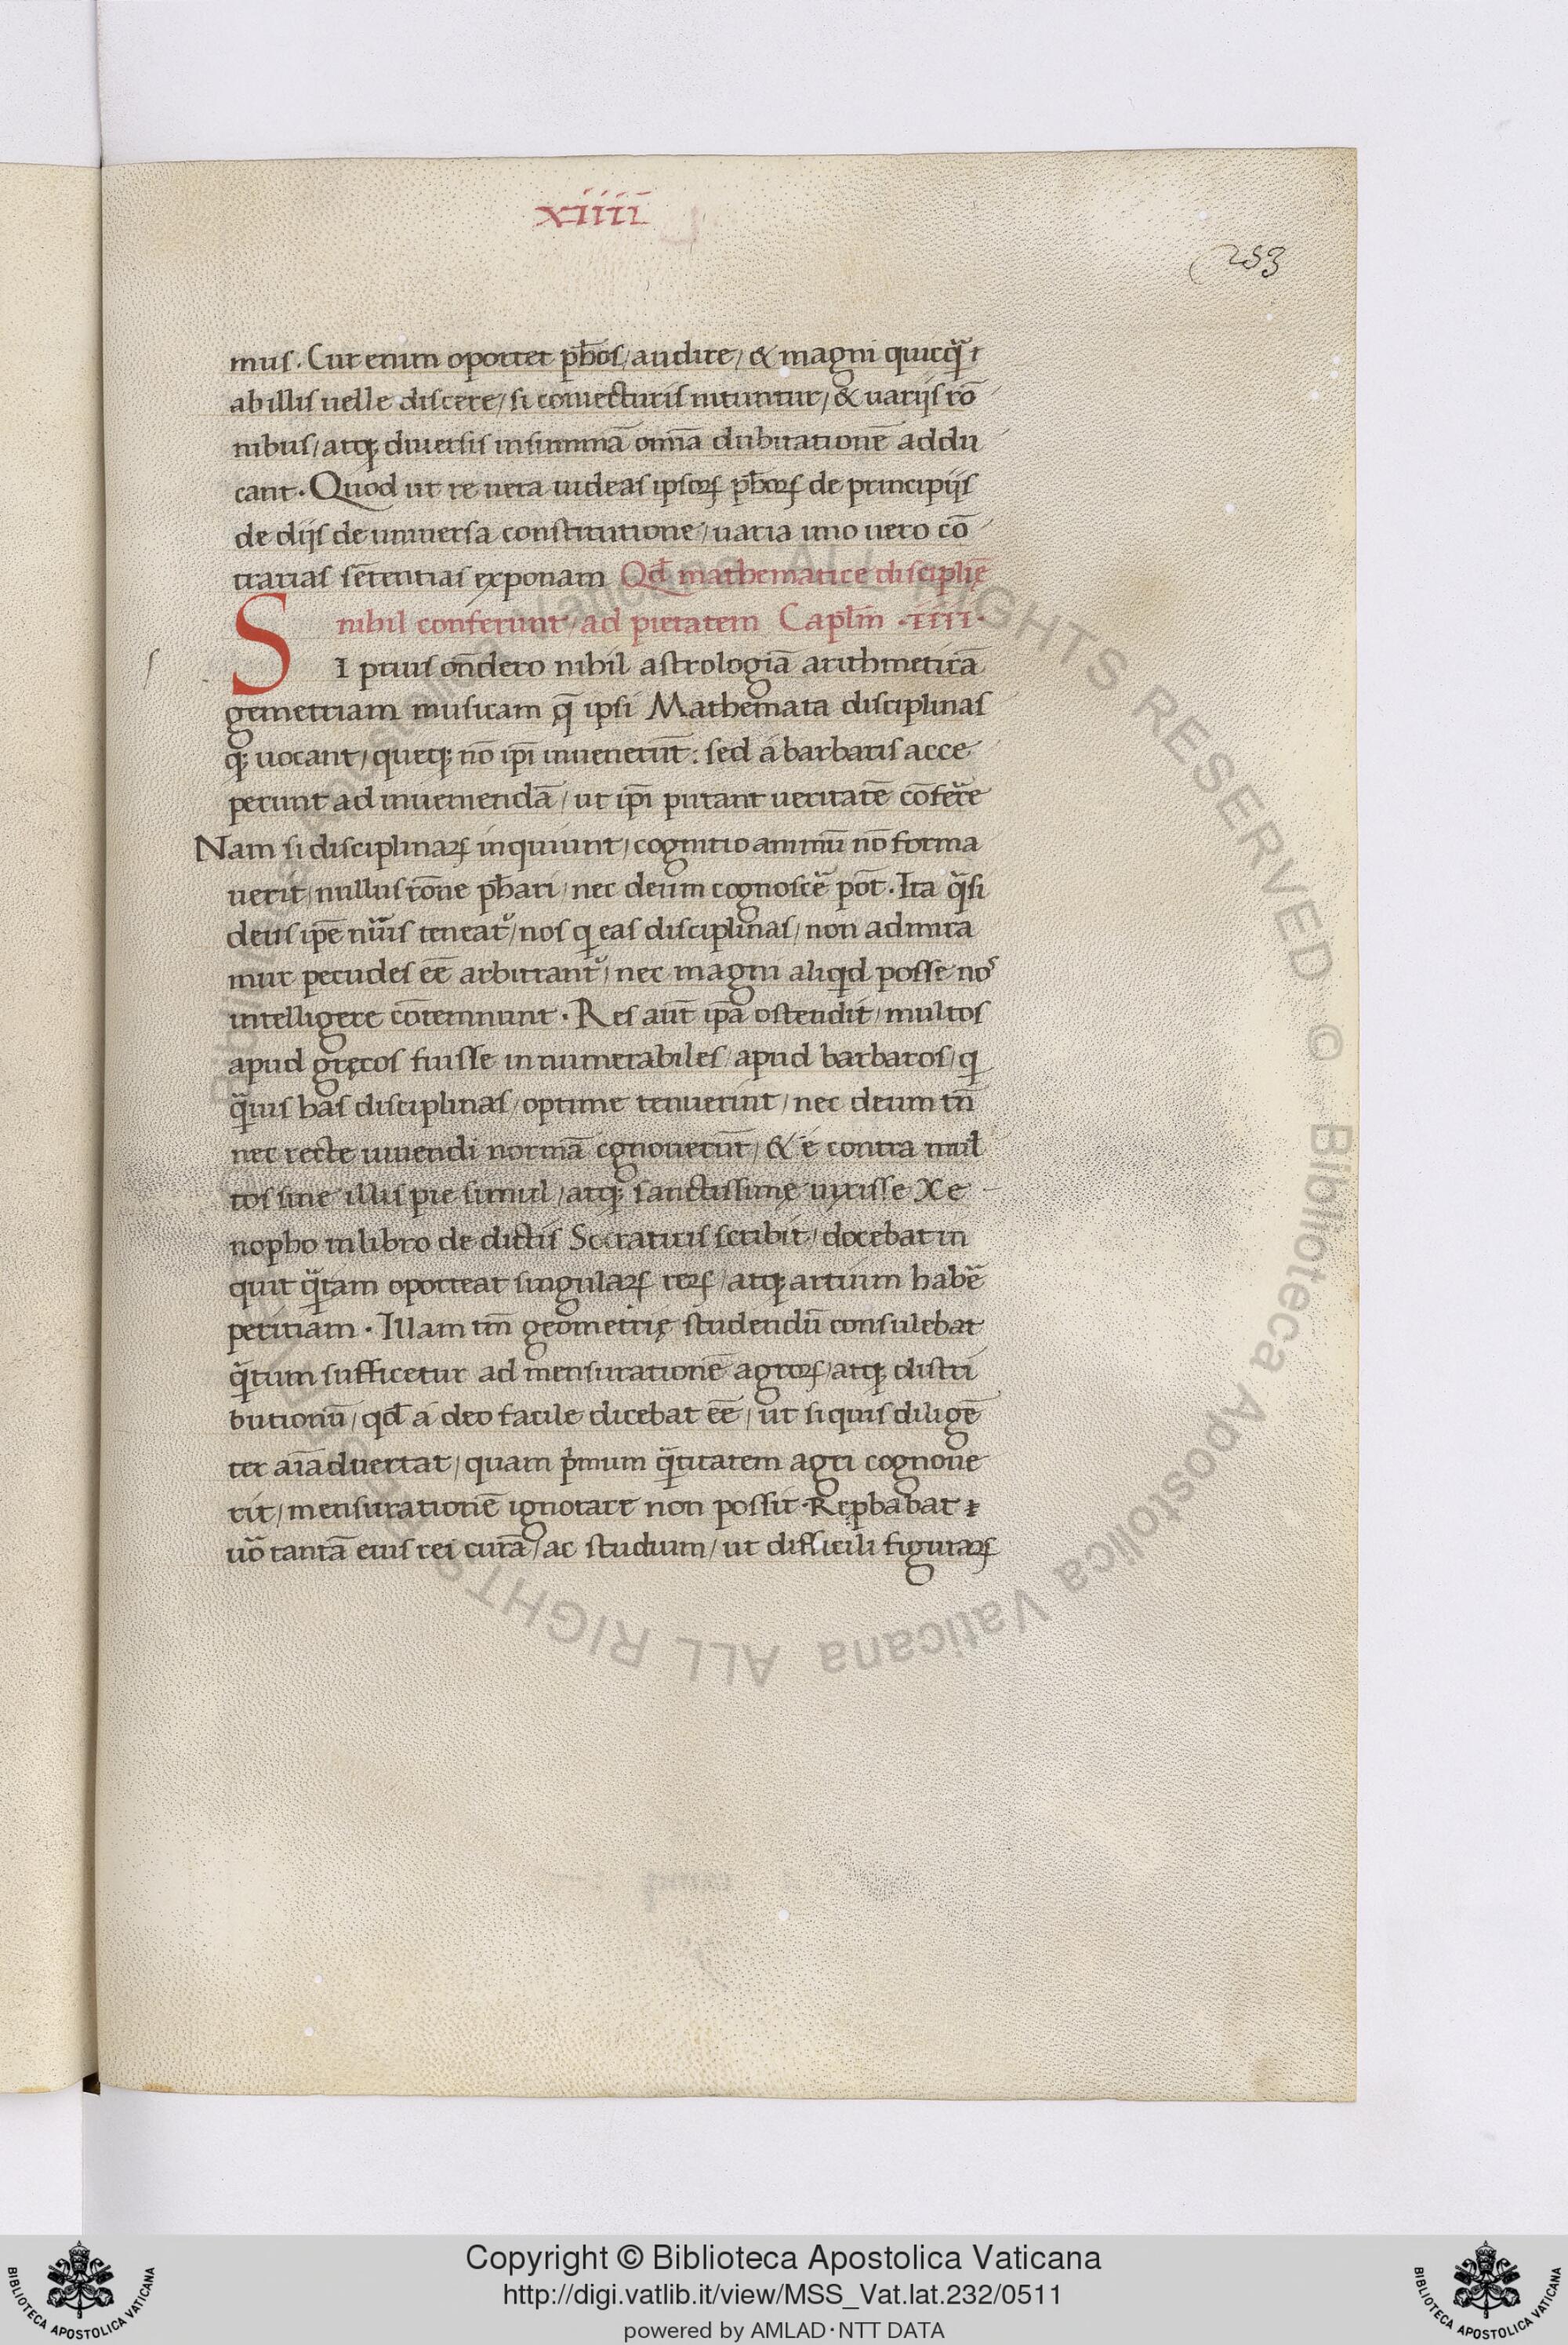 xiiii
253
mus. Cur enim oportet pħos/ audire/ & magni quicq̃
ab illis uelle discere/ si coniecturis nituntur/ & uarijs rō
nibus/ atq; diuersis in summā omīa dubitationē addu
cant. Quod ut re uera uideas ipsoꝝ pħoꝝ de principijs
de dijs de uniuersa constitutione/ uaria imo uero cō
trarias sētentias exponam Qđ mathematice disciplīę
nihil conferunt/ ad pietatem Caplm̄ .iiii.
SI prius ōndero nihil astrologiā arithmeticā
gemetriam musicam q̄ ipsi Mathemata disciplinas
q; uocant/ queq; nō ip̄i inuenerūt: sed á barbaris acce
perunt ad inueniendā/ ut ip̄i putant ueritatē cōferre
Nam si disciplinaꝝ inquiunt/ cognitio animū nō forma
uerit/ nullus rōne pħari/ nec deum cognoscẽ pōt. Ita q̃si
deus ip̄e nr̃is teneat᷑/ nos q eas disciplinas/ non admira
mur pecudes eē arbitrant᷑/ nec magni aliqd posse nos
intelligere cōtemnunt. Res aūt ip̄a ostendit/ multos
apud gręcos fuisse innumerabiles/ apud barbaros/ q
q̃uis has disciplinas/ optime tenuerint/ nec deum tn̄
nec recte uiuendi normā cgnouerūt/ & é contra mul
tos sine illis pie simul/ atq; sanctissimę uixisse Xe
nopho in libro de dictis Socraticis scribit/ docebat in
quit q̃tam oporteat singularꝝ rerꝝ/ atq; artium habẽ
peritiam. Illam tm̄ geometrię studendū consulebat
q̃tum sufficetur ad mensurationē agroꝝ/ atq; distri
butionū/ qđ á deo facile dicebat eē/ ut si quis diligē
ter aīaduertat/ quam pͥmum q̃titatem agri cognoue
rit/ mensurationē ignorare non possit. Rep̱babat
uõ tantā eius rei curā/ ac studium/ ut difficili figuraꝝ
Copyright © Biblioteca Apostolica Vaticana
http://digi.vatlib.it/view/MSS_Vat.lat.232/0511
powered by AMLAD·NTT DATA